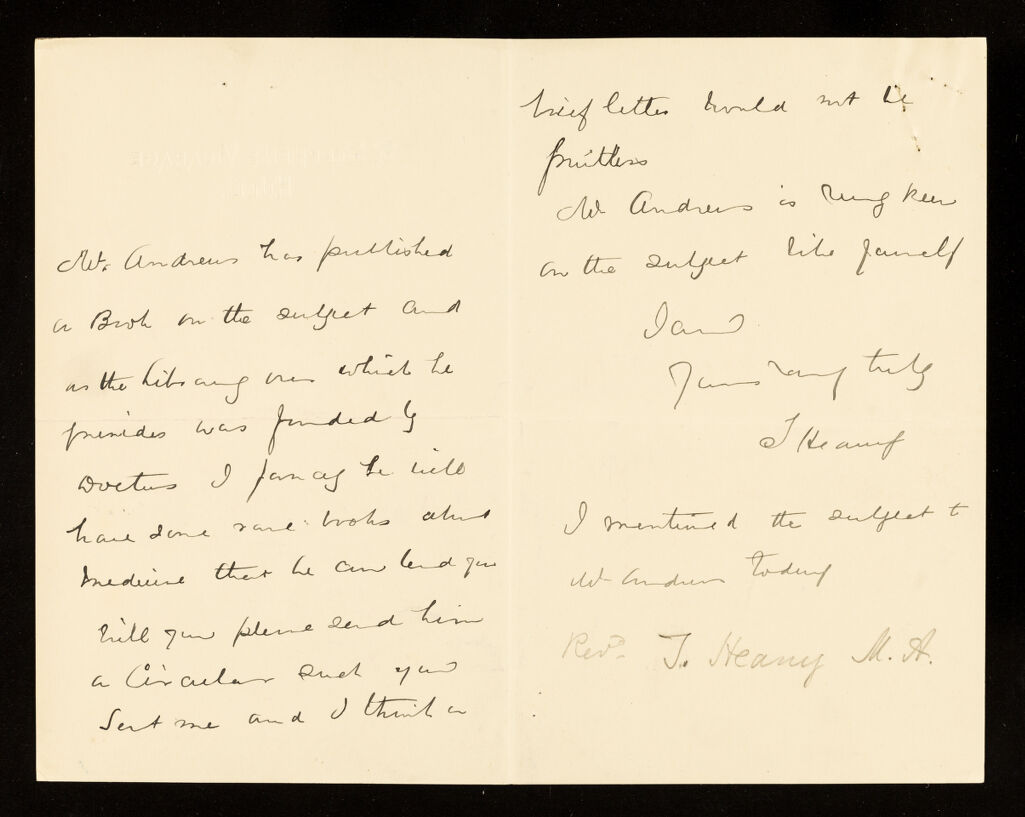 Mr. Andrews has published
a Book on the subject and
as the Library over which he
presides was founded by
Doctors I fancy he will
have some rare books about
Medicine that he can lend you
Will you please send him
a Circular such you
Sent me and I think a
brief letter would not be
fruitless
Mr Andrews is very keen
on the subject like yourself
I am
Yours very truly
T Heany
I mentioned the subject to
Mr Andrews today
Revd. T. Heany M.A.